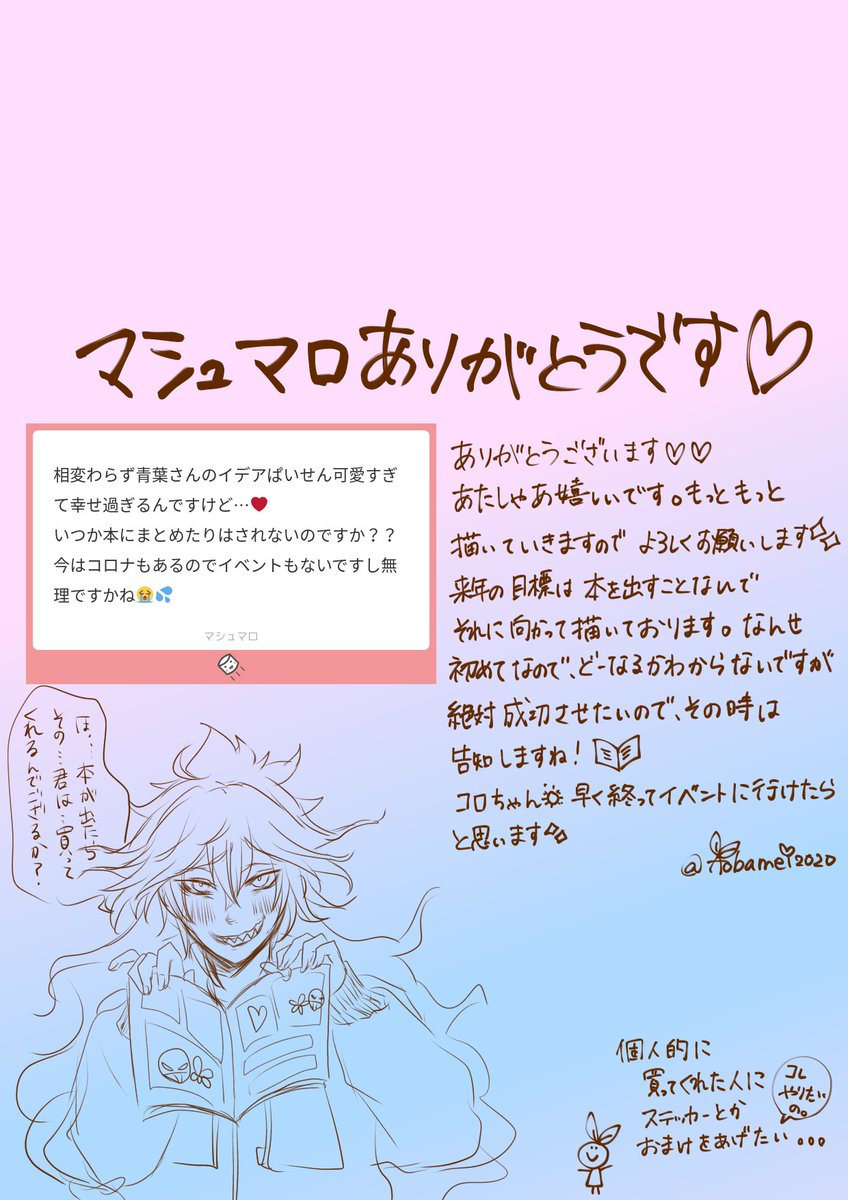 マシュマロありがとうです♡
相変わらず青葉さんのイデアぱいせん可愛すぎ
て幸せ過ぎるんですけど…❤
いつか本にまとめたりはされないのですか？？
今はコロナもあるのでイベントもないですし無
理ですかね😭💦
マシュマロ
ありがとうございます♡♡
あたしゃあ嬉しいです。もっともっと
描いていきますので よろしくお願いします
来年の目標は 本を出すことなんで
それに向かって描いております。なんせ
初めてなので、どーなるかわからないですが
絶対 成功させたいので、その時は
告知しますね！
コロちゃん 早く終ってイベントに行けたら
と思います
@Aobamei2020
ほ、、本が出たら
その…君は…買って
くれるんでござるか？
個人的に
買ってくれた人に
ステッカーとか
おまけをあげたい...
コレ
やりたい
の。